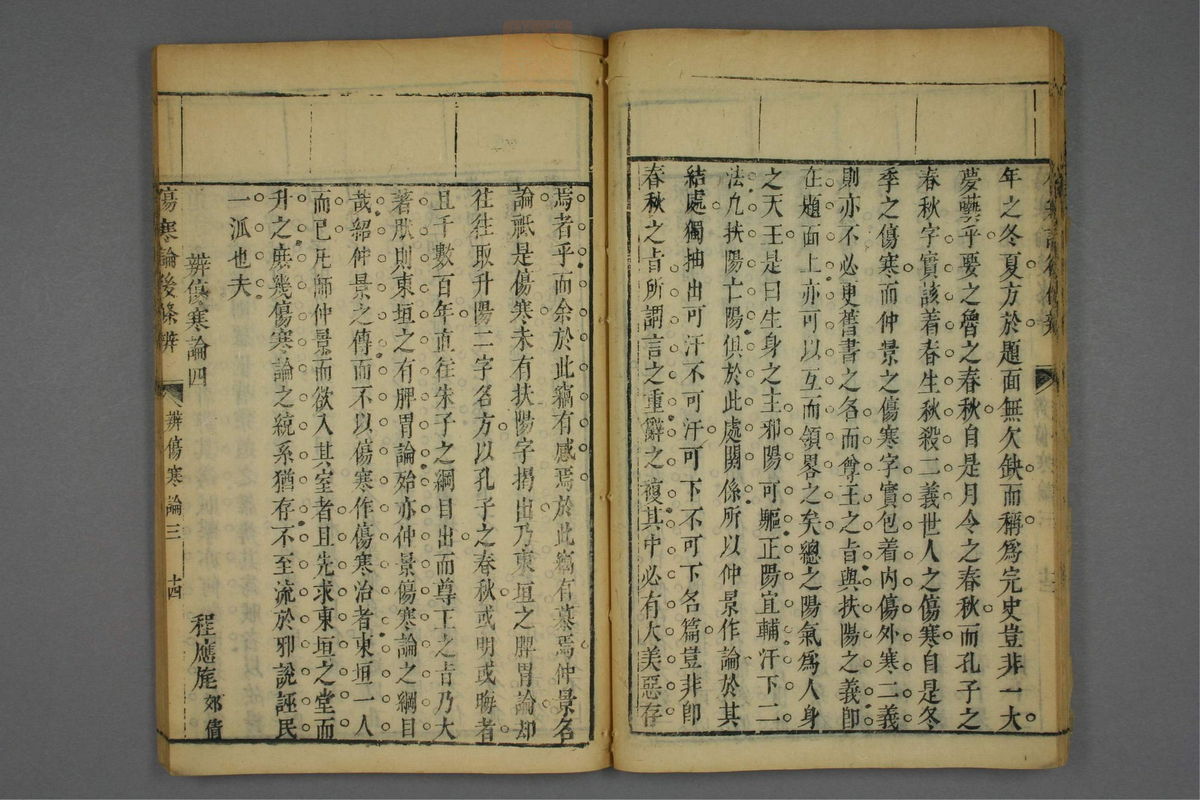 年之冬夏方於題面無欠缺而稱為完史豈非一大
夢藝乎要之魯之春秋自是月令之春秋而孔子之
春秋字實該着春生秋殺二義世人之傷寒自是冬
季之傷寒而仲景之傷寒字實包着內傷外寒二義
則亦不必更舊書之名而尊王之旨與扶陽之義卽
在題面上亦可以互而領畧之矣總之陽氣為人身
之天王是曰生身之主邪陽可驅正陽宜輔汗下二
法凢扶陽亡陽俱於此處關係所以仲景作論於其
結處獨抽出可汗不可汗可下不可下名篇豈非卽
春秋之旨所謂言之重辭之複其中必有大美惡存
焉者乎而余於此竊有感焉於此竊有慕焉仲景名
論祇是傷寒未有扶陽字揭出乃東垣之脾胃論却
往往取升陽二字名方以孔子之春秋或明或晦者
且千數百年直往朱子之綱目出而尊王之旨乃大
著肰則東垣之有脾胃論殆亦仲景傷寒論之綱目
哉紹仲景之傳而不以傷寒作傷寒治者東垣一人
而已凡師仲景而欲入其室者且先求東垣之堂而
升之庶幾傷寒論之統系猶存不至流於邪說誣民
一派也夫
辨傷寒論四
程應旄 郊倩
傷寒論後條辨
辨傷寒論三
十四